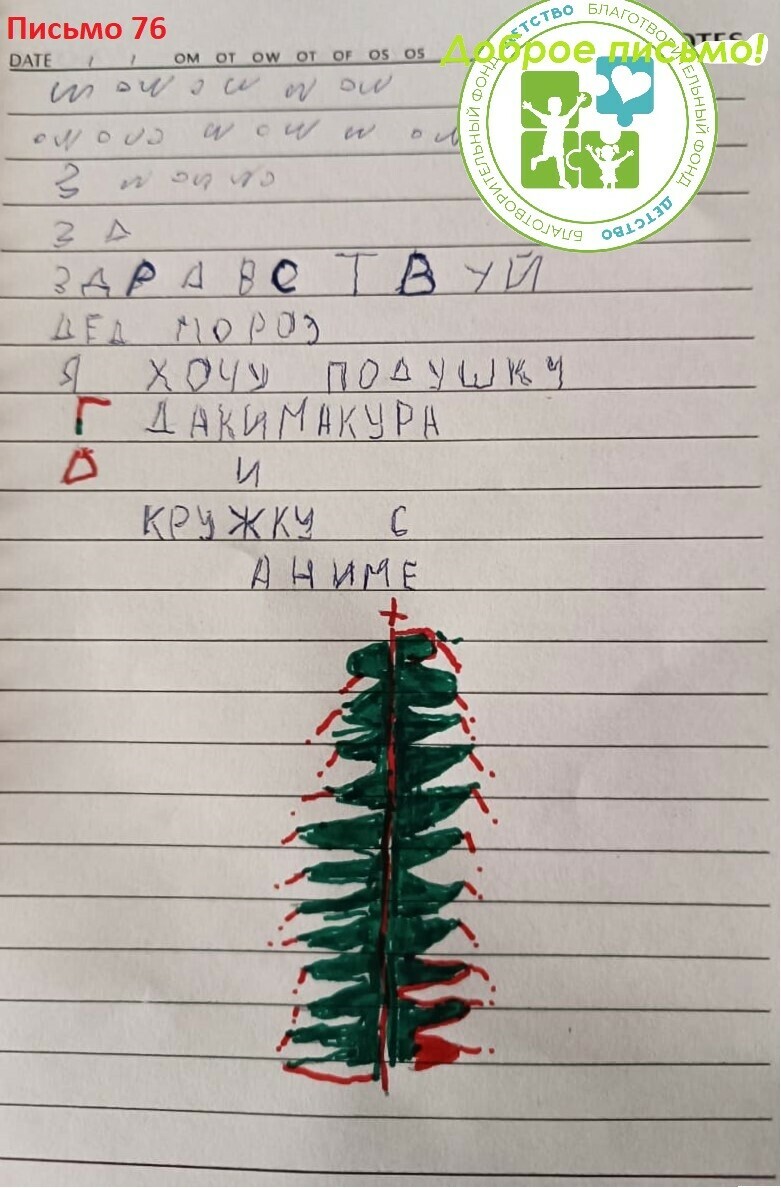 Письмо 76
Доброе письмо!
DATE / / ОМ ОТ OW ОТ OF OS OS NOTES
БЛАГОТВОРИТЕЛЬНЫЙ ФОНД ДЕТСТВО
БЛАГОТВОРИТЕЛЬНЫЙ ФОНД ДЕТСТВО
З Д
ЗДРАВСТВУЙ
ДЕД МОРОЗ
Я ХОЧУ ПОДУШКУ
Г ДАКИМАКУРА
О И
КРУЖКУ С
АНИМЕ